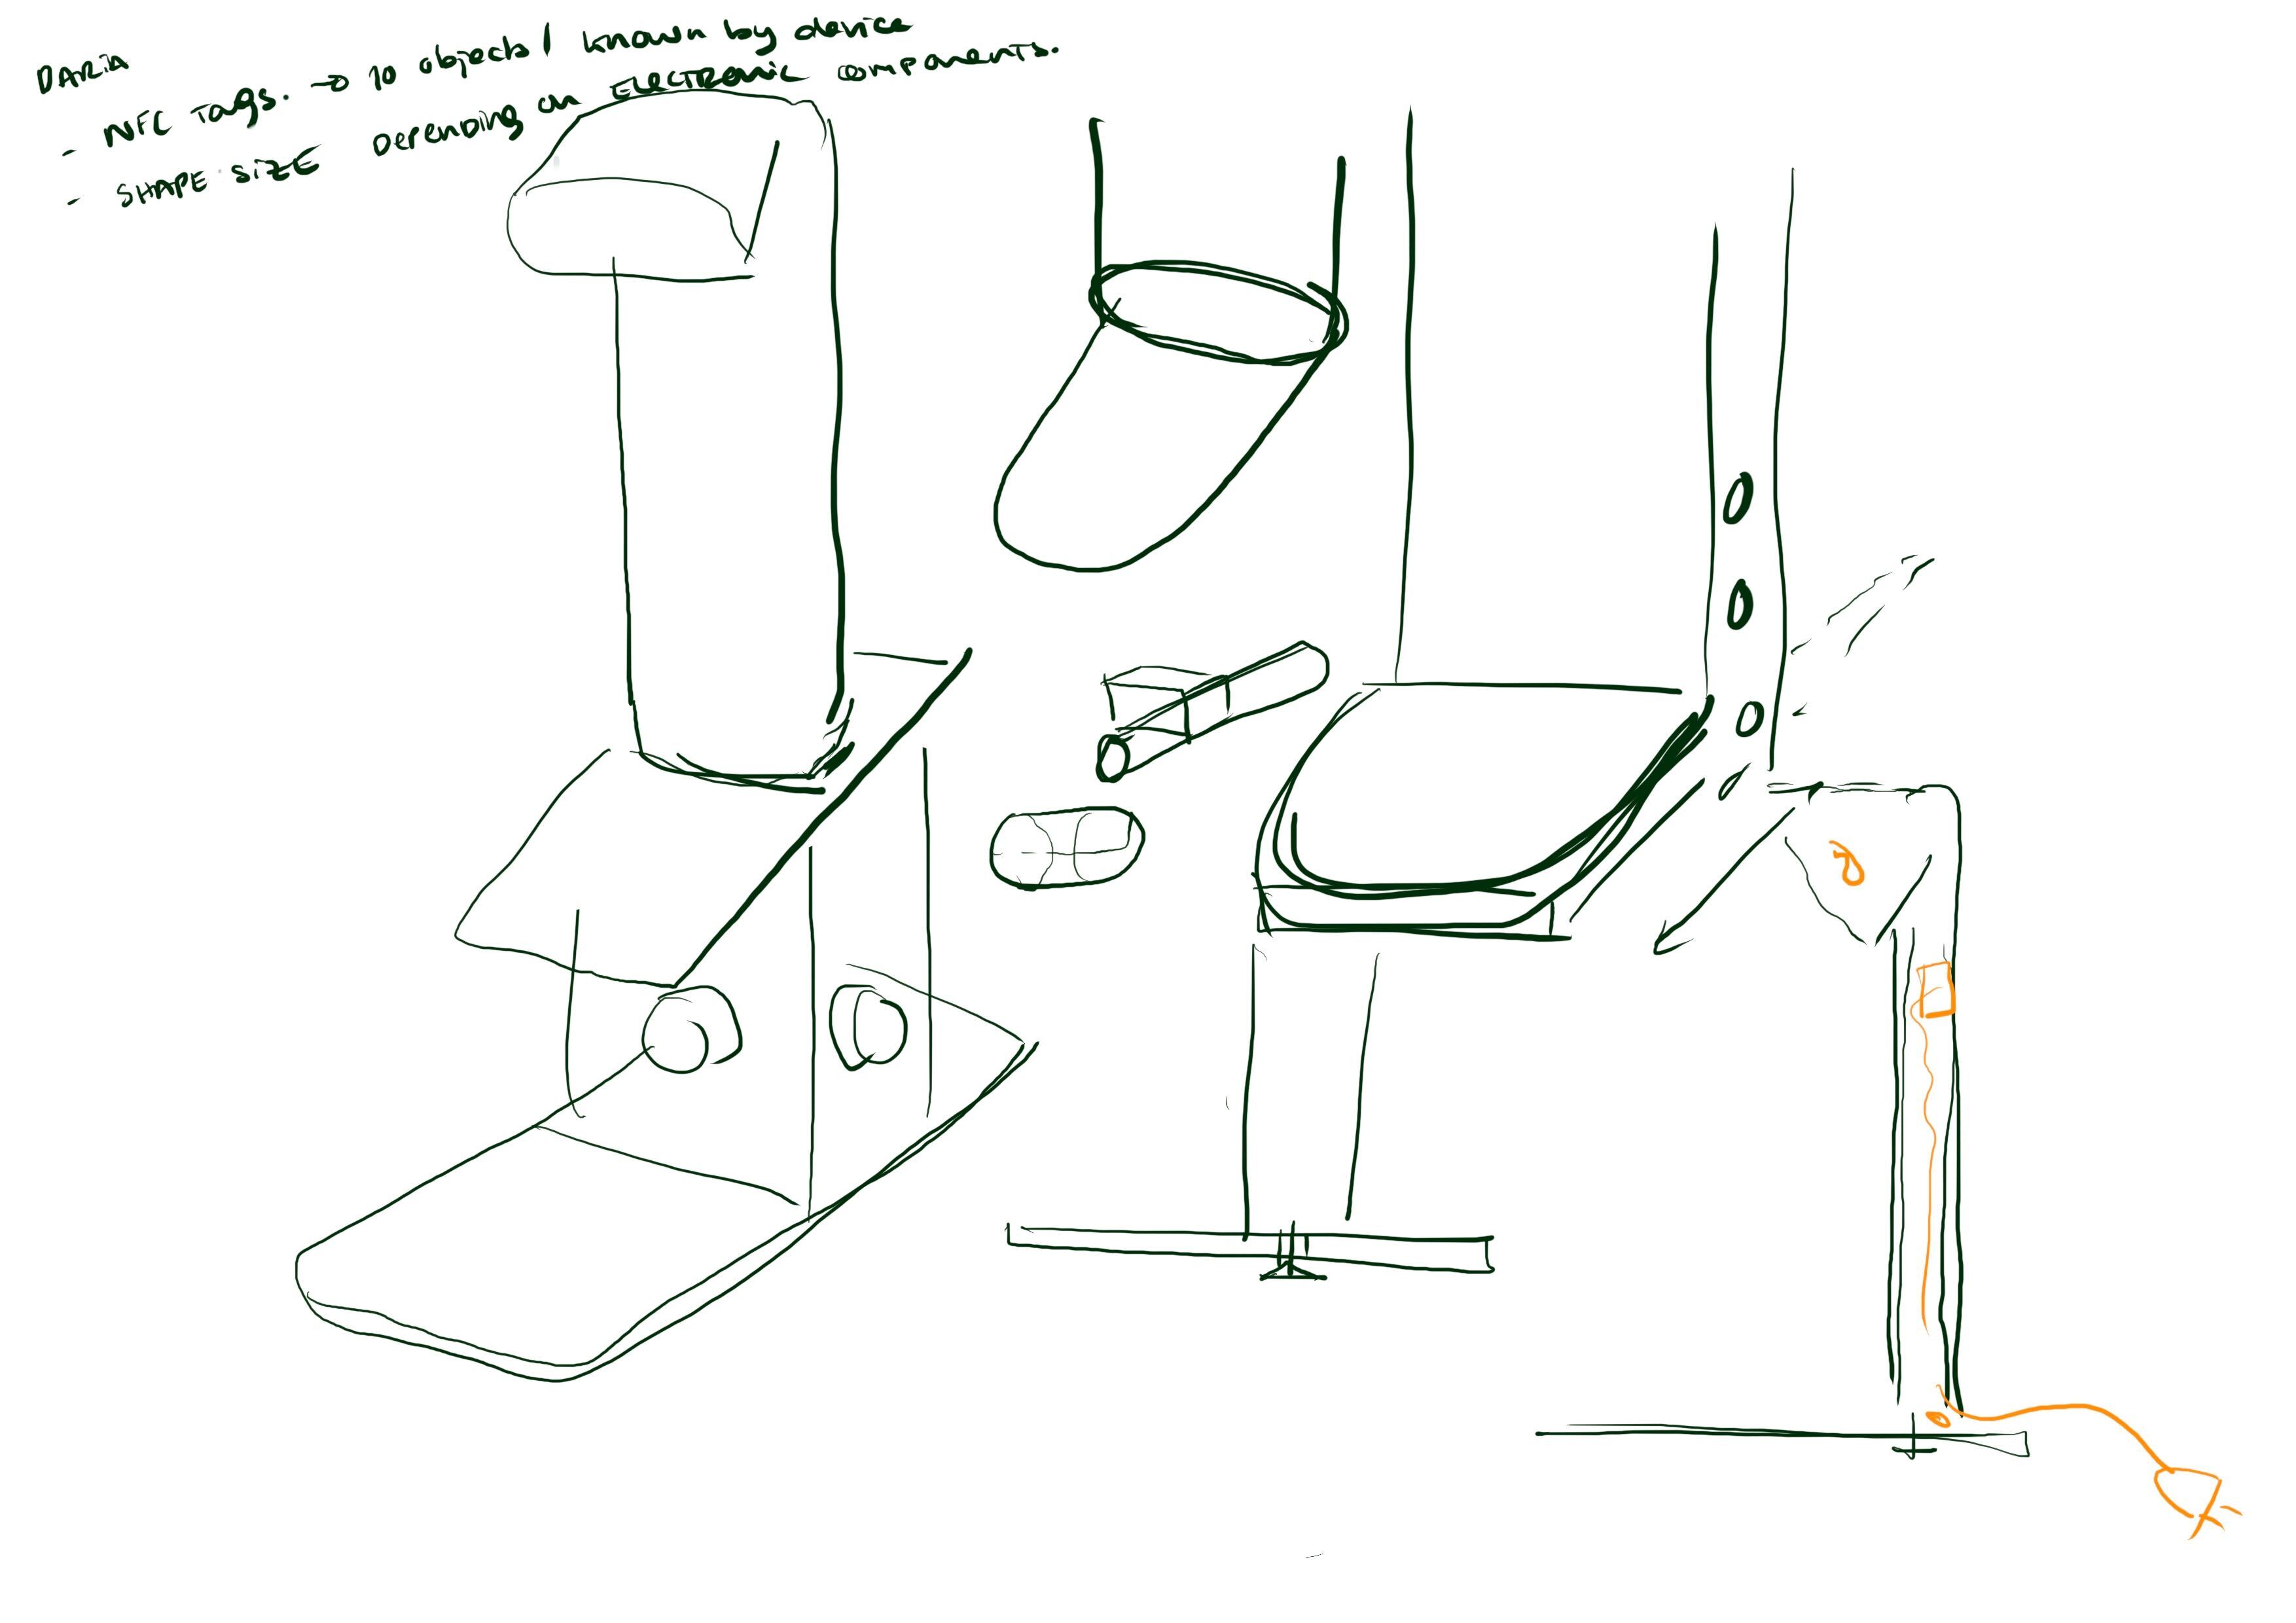 DARIA
- NFC Tags. → 10 objects | known by device
- SHAPE SIZE DEPENDING on ELECTRONIC components.